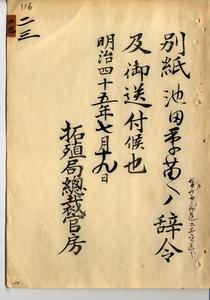 116
二三
別紙池田季苗ヘノ辞令
及御送付候也
明治四十五年七月十九日
拓殖局總裁官房